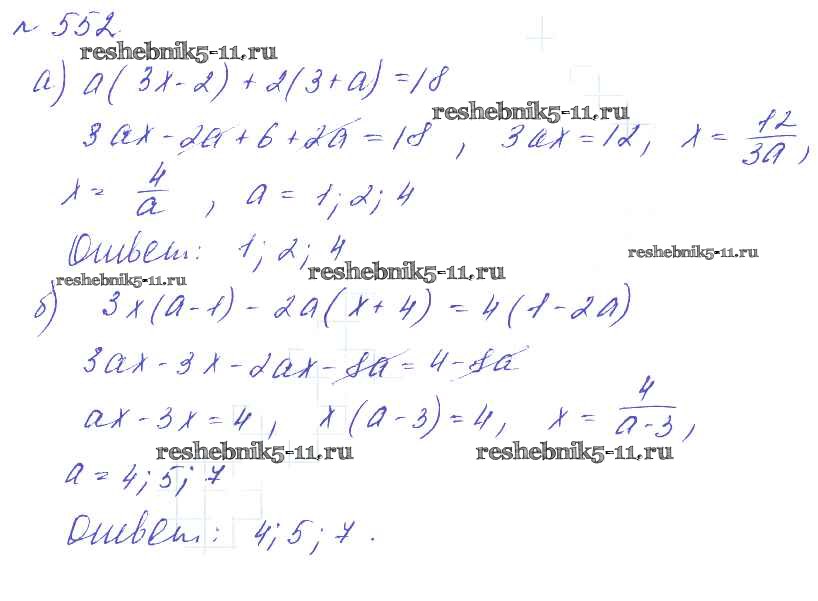 № 552.
reshebnik5-11.ru
а) a(3x-2)+2(3+a)=18
reshebnik5-11.ru
3ax-2a+6+2a=18, 3ax=12, x=12/3a,
x=4/a, a=1;2;4
Ответ: 1;2;4
reshebnik5-11.ru
reshebnik5-11.ru
reshebnik5-11.ru
б) 3x(a-1)-2a(x+4)=4(1-2a)
3ax-3x-2ax-8a=4-8a
ax-3x=4, x(a-3)=4, x=4/a-3,
reshebnik5-11.ru
reshebnik5-11.ru
a=4;5;7
Ответ: 4;5;7.